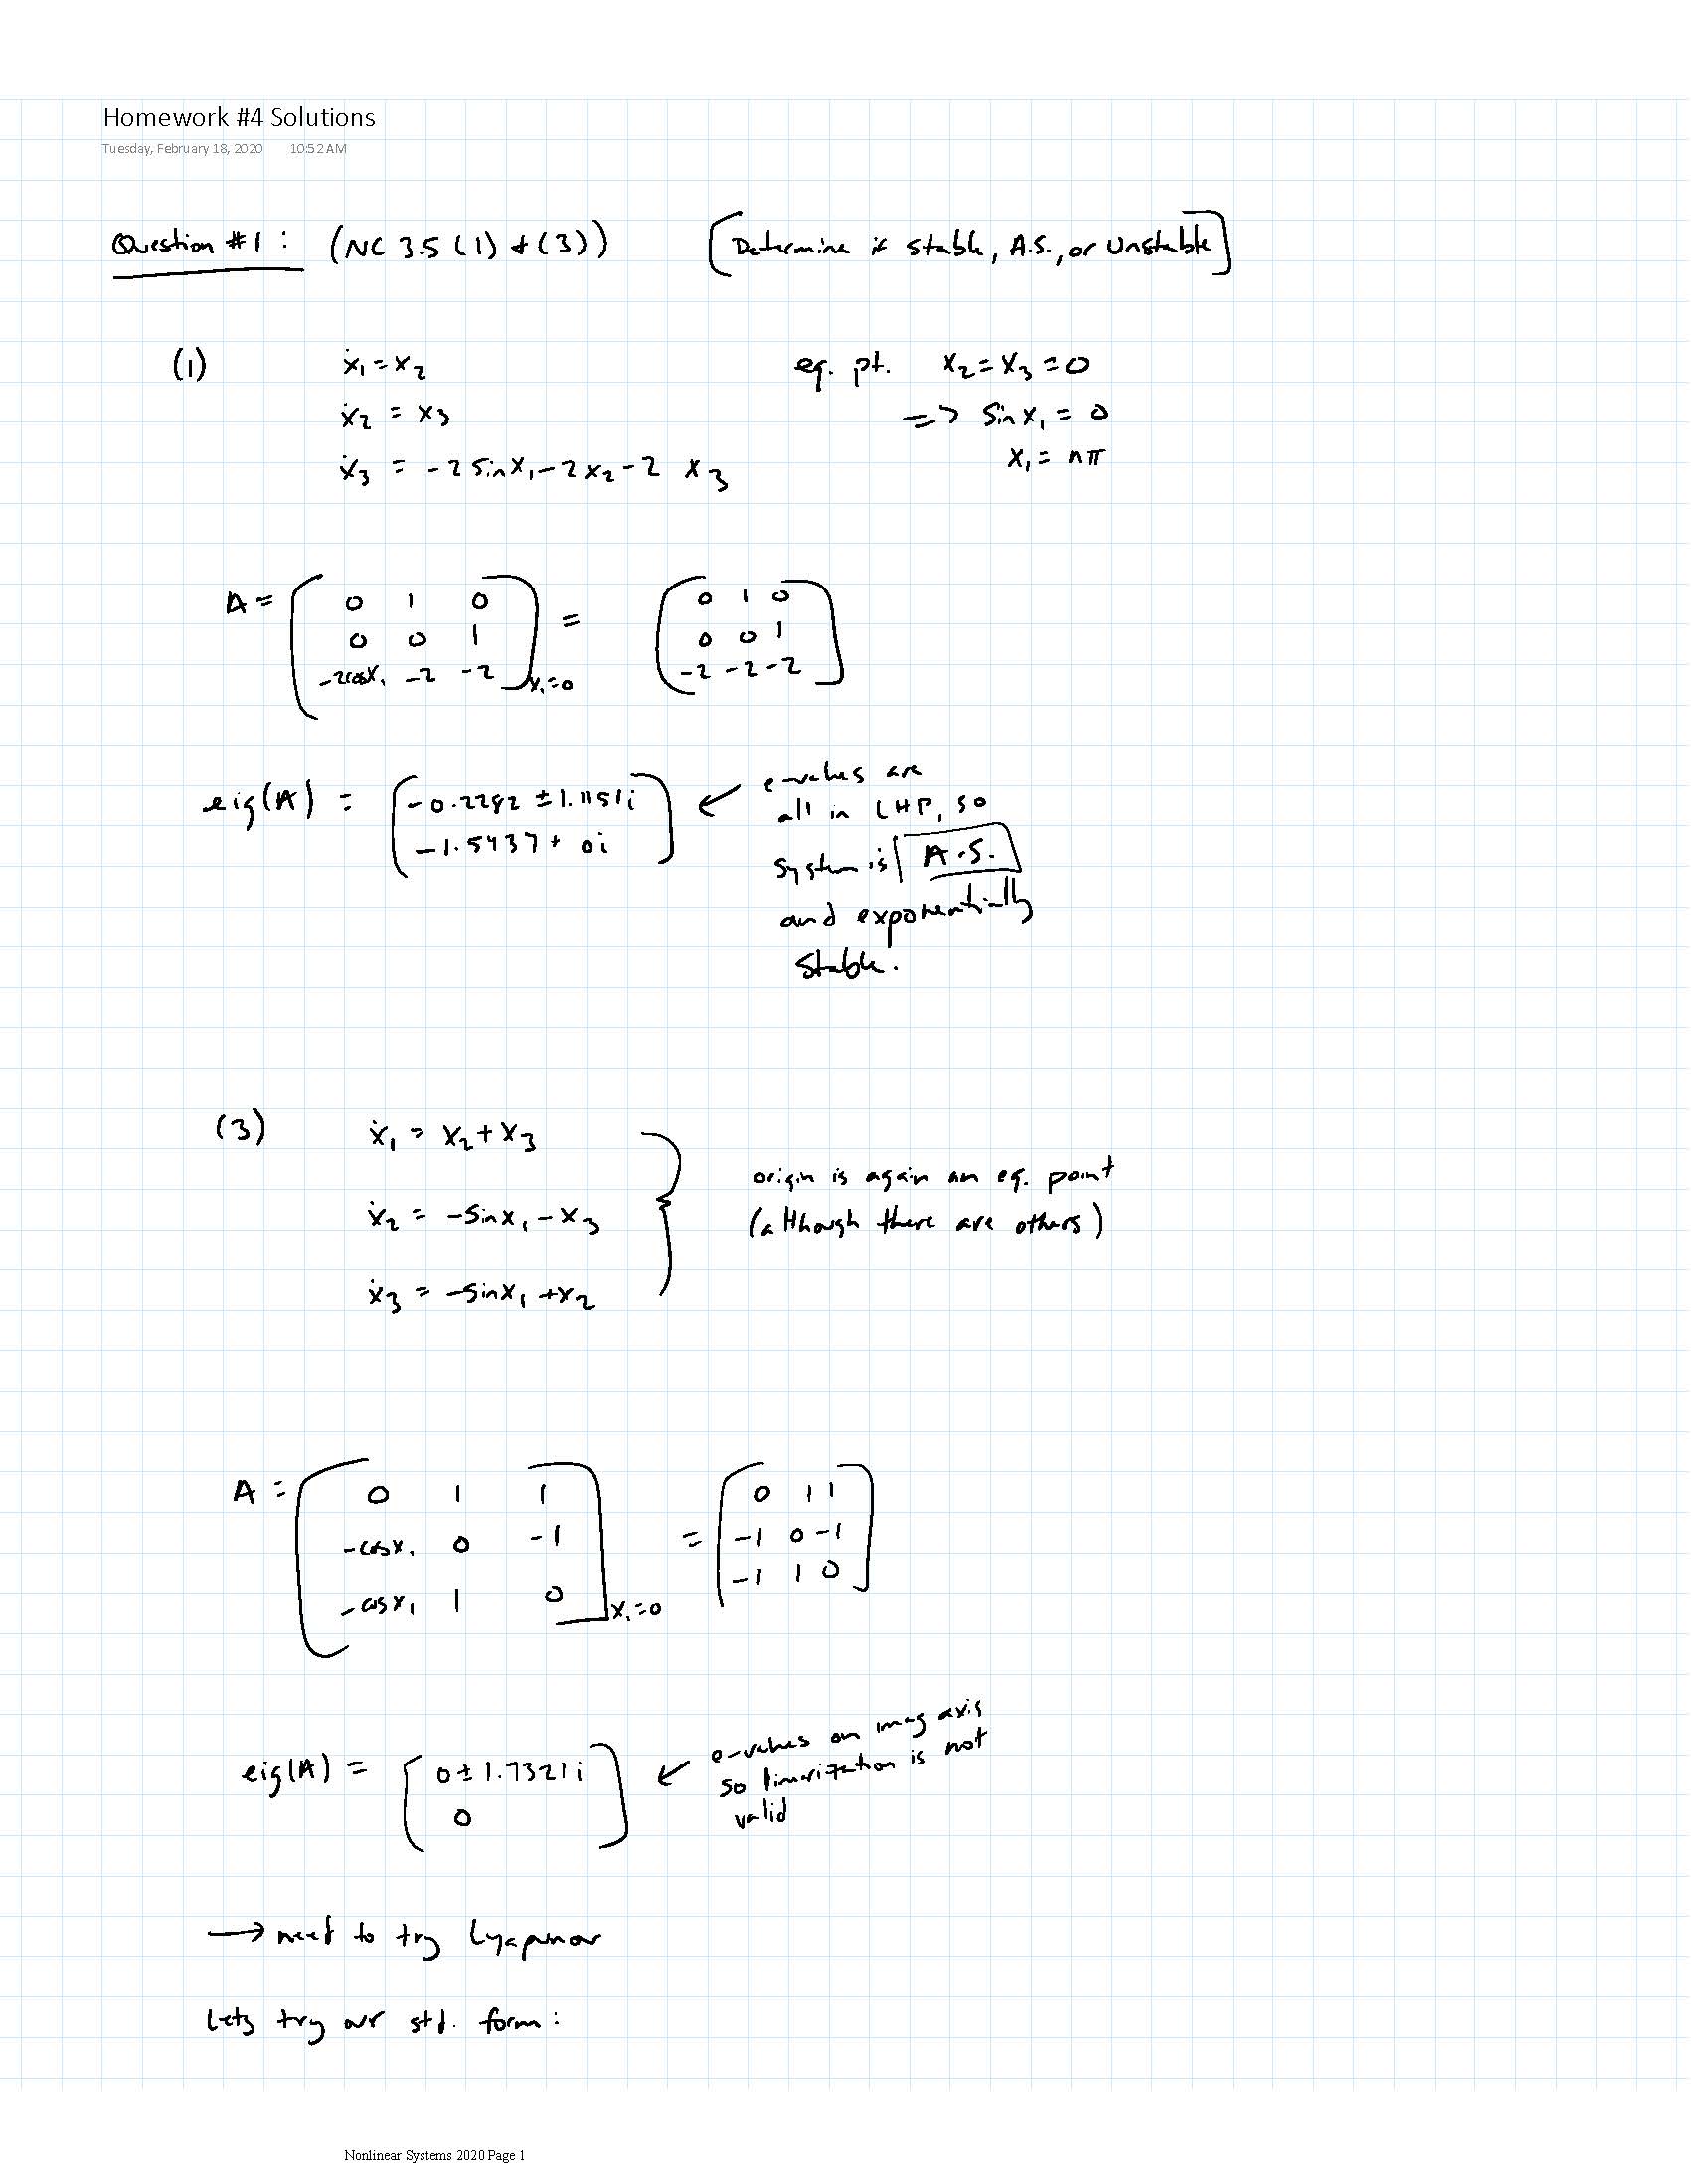 Homework #4 Solutions
Tuesday, February 18, 2020 10:52 AM
Question #1 : (NC 3.5 (1) + (3)) [Determine if stable, A.S., or Unstable]
(1) ẋ₁ = x₂ eq. pt. x₂ = x₃ = 0
ẋ₂ = x₃ => sin x₁ = 0
ẋ₃ = -2 sin x₁ - 2 x₂ - 2 x₃ x₁ = nπ
A = [0 1 0; 0 0 1; -2cos x₁ -2 -2] x₁=0 = [0 1 0; 0 0 1; -2 -2 -2]
eig(A) = [-0.2282 ± 1.1151i; -1.5437 + 0i] ← e-values are
all in LHP, so
system is A.S.
and exponentially
stable.
(3) ẋ₁ = x₂ + x₃
ẋ₂ = -sin x₁ - x₃
ẋ₃ = -sin x₁ + x₂
origin is again an eq. point
(although there are others)
A = [0 1 1; -cos x₁ 0 -1; -cos x₁ 1 0] x₁=0 = [0 1 1; -1 0 -1; -1 1 0]
eig(A) = [0 ± 1.7321i; 0] ← e-values on imag axis
so linearization is not
valid
→ need to try Lyapunov
Lets try our std. form:
Nonlinear Systems 2020 Page 1